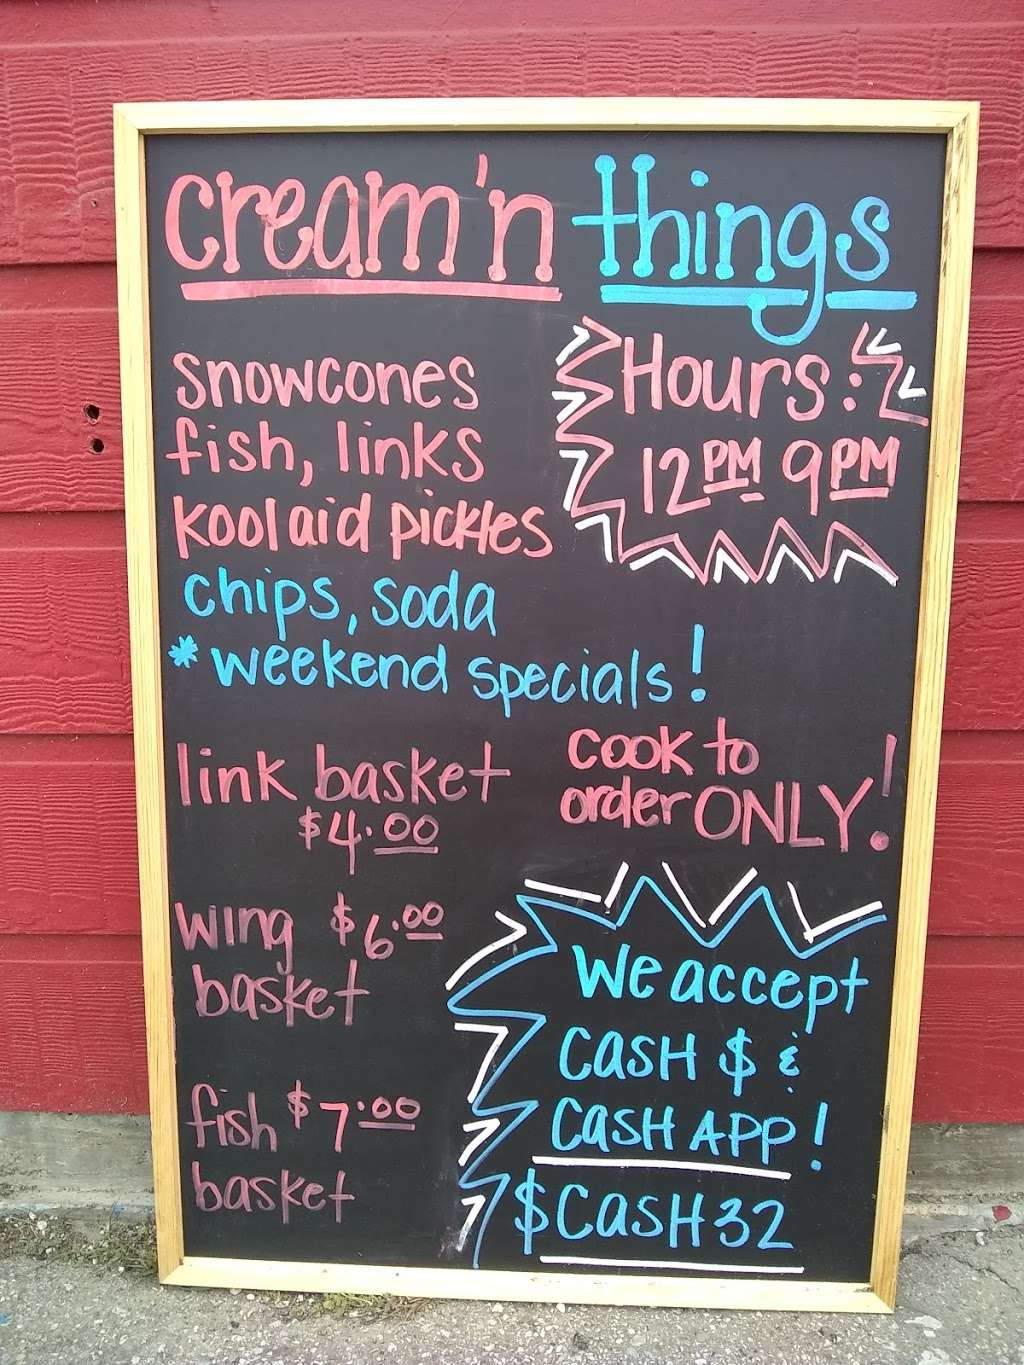 cream'n things
snowcones
fish, links
koolaid pickles
chips, soda
*weekend specials!
Hours:
12PM 9PM
link basket
$4.00
cook to
order ONLY!
wing $6.00
basket
fish $7.00
basket
We accept
CASH $ &
CASH APP!
$CASH32